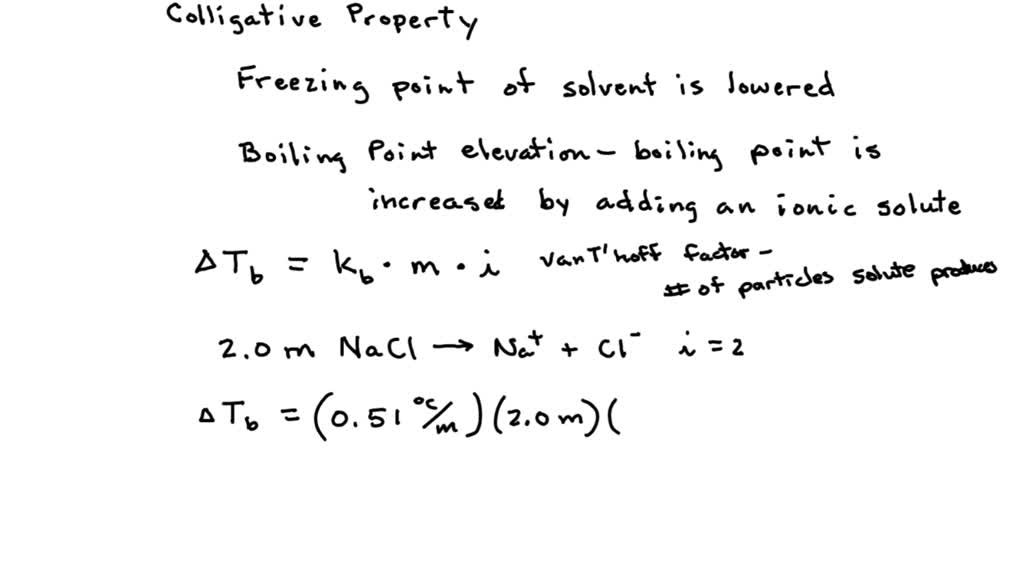 Colligative Property
Freezing point of solvent is lowered
Boiling Point elevation - boiling point is
increased by adding an ionic solute
ΔT_b = k_b · m · i van T'hoff factor -
# of particles solute produces
2.0 m NaCl → Na⁺ + Cl⁻ i = 2
ΔT_b = (0.51 °C/m)(2.0 m)(